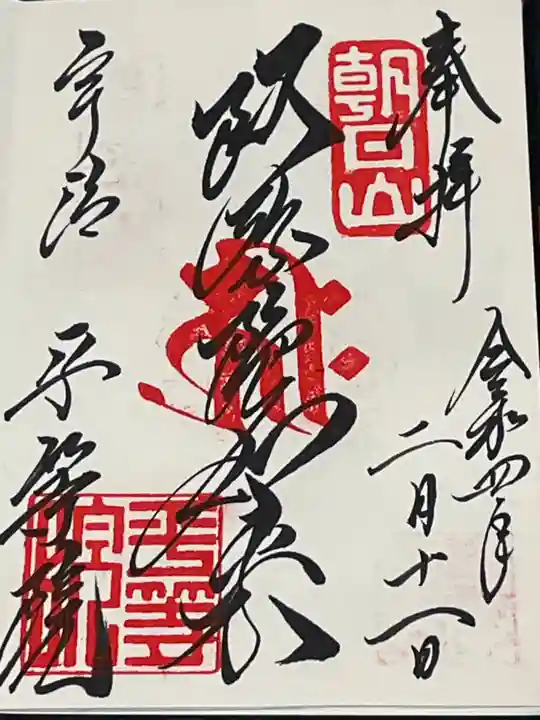 奉拝
令和四年
二月十八日
朝日山
阿弥陀如来
宇治
平等院
平等
院印